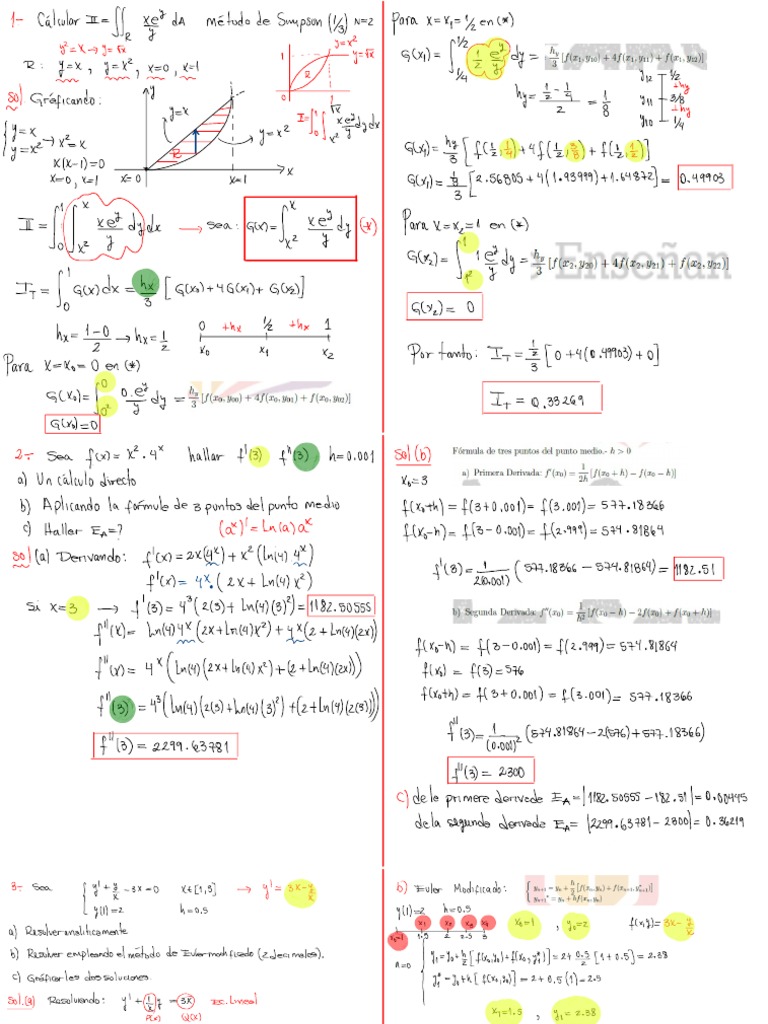 1- Cálcular II = ∬_R xe^y/y dA método de Simpson (1/3) N=2
y²=x → y=√x
R: y=x, y=x², x=0, x=1
Sol. Gráficando:
{ y=x
y=x² → x²=x
x(x-1)=0
x=0, x=1
y
y=x
y=x²
R
x=0
x=1
x
1
y=x²
y=√x
R
1
II=∫₀¹∫ˣ^√x xe^y/y dy dx
II = ∫₀¹ ∫_{x²}^{x} xe^y/y dy dx → sea: G(x)=∫_{x²}^{x} xe^y/y dy (*)
I_T = ∫₀¹ G(x)dx = hx/3 [G(x₀)+4G(x₁)+G(x₂)]
hx = 1-0/2 → hx = 1/2
0 +hx 1/2 +hx 1
x₀ x₁ x₂
Para x=x₀=0 en (*)
G(x₀)=∫_{0²}^{0} 0.e^y/y dy = h_y/3 [f(x₀,y₀₀) + 4f(x₀,y₀₁) + f(x₀,y₀₂)]
G(x₀)=0
Para x=x₁=1/2 en (*)
G(x₁)=∫_{1/4}^{1/2} 1/2 e^y/y dy = h_y/3 [f(x₁,y₁₀) + 4f(x₁,y₁₁) + f(x₁,y₁₂)]
hy = 1/2 - 1/4 / 2 = 1/8
y₁₂ 1/2
+hy
y₁₁ 3/8
+hy
y₁₀ 1/4
G(x₁)= hy/3 [f(1/2,1/4)+4f(1/2,3/8)+f(1/2,1/2)]
G(x₁)= 1/8/3 [2.56805+4(1.93999)+1.64872] = 0.49903
Para x=x₂=1 en (*)
Enseñan
G(x₂)=∫_{1²}^{1} 1e^y/y dy = h_y/3 [f(x₂,y₂₀) + 4f(x₂,y₂₁) + f(x₂,y₂₂)]
G(x₂)= 0
Por tanto: I_T = 1/2/3 [0+4(0.49903)+0]
I_T = 0.33269
2- Sea f(x)=x².4ˣ hallar f'(3) f''(3) h=0.001
a) Un cálculo directo
b) Aplicando la formule de 3 puntos del punto medio
c) Haller E_A=? (aˣ)'=Ln(a)aˣ
Sol (a) Derivando: f'(x)=2x(4ˣ)+x²(Ln(4)4ˣ)
f'(x)=4ˣ.(2x+Ln(4)x²)
Si x=3 → f'(3)=4³(2(3)+Ln(4)(3)²)=1182.50555
f''(x)=Ln(4)4ˣ(2x+Ln(4)x²)+4ˣ(2+Ln(4)(2x))
f''(x)=4ˣ(Ln(4)(2x+Ln(4)x²)+(2+Ln(4)(2x))
f''(3)=4³(Ln(4)(2(3)+Ln(4)(3)²)+(2+Ln(4)(2(3)))
f''(3)=2299.63781
Sol (b)
Fórmula de tres puntos del punto medio.- h > 0
x₀=3
a) Primera Derivada: f'(x₀) = 1/2h [f(x₀ + h) − f(x₀ − h)]
f(x₀+h)=f(3+0.001)=f(3.001)=577.18366
f(x₀-h)=f(3-0.001)=f(2.999)=574.81864
f'(3)=1/2(0.001) (577.18366-574.81864)=1182.51
b) Segunda Derivada: f''(x₀) = 1/h² [f(x₀ − h) − 2f(x₀) + f(x₀ + h)]
f(x₀-h)=f(3-0.001)=f(2.999)=574.81864
f(x₀)=f(3)=576
f(x₀+h)=f(3+0.001)=f(3.001)=577.18366
f''(3)=1/(0.001)² (574.81864-2(576)+577.18366)
f''(3)=2300
C) de le primere derivede E_A=|1182.50555-182.51|=0.00445
de la segundo derivede E_A=|2299.63781-2300|=0.36219
3- Sea { y'+y/x-3x=0 x∈[1,3] → y'=3x-y/x
y(1)=2 h=0.5
a) Resolver analíticamente
b) Resolver empleando el método de Euler modificado (2 decimales).
c) Gráficar les dos soluciones.
Sol.(a) Resolviendo: y'+(1/x)y=3x Ec. Lineal
P(x) Q(x)
b) Euler Modificado: { yₙ₊₁ = yₙ + h/2 [f(xₙ,yₙ) + f(xₙ₊₁,y*ₙ₊₁)]
y*ₙ₊₁ = yₙ + hf(xₙ,yₙ)
y(1)=2 h=0.5
x₁ x₂ x₃ x₄
x₀=1 1.5 2 2.5 3
x₀=1, y₀=2 f(x,y)=3x-y/x
n=0 { y₁=y₀+h/2[f(x₀,y₀)+f(x₁,y₁*)]=2+0.5/2[1+0.5]=2.38
y₁*=y₀+h[f(x₀,y₀)]=2+0.5(1)=2.5
x₁=1.5, y₁=2.38